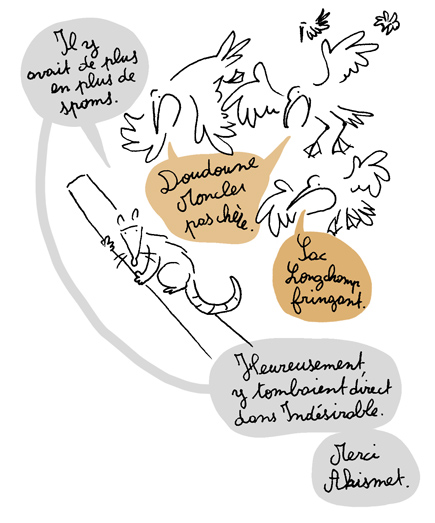 Il y
avait de plus
en plus de
spams.
Doudoune
Moncler
pas chère.
Sac
Longchamp
fringant.
Heureusement,
y tombaient direct
dans Indésirable.
Merci
Akismet.